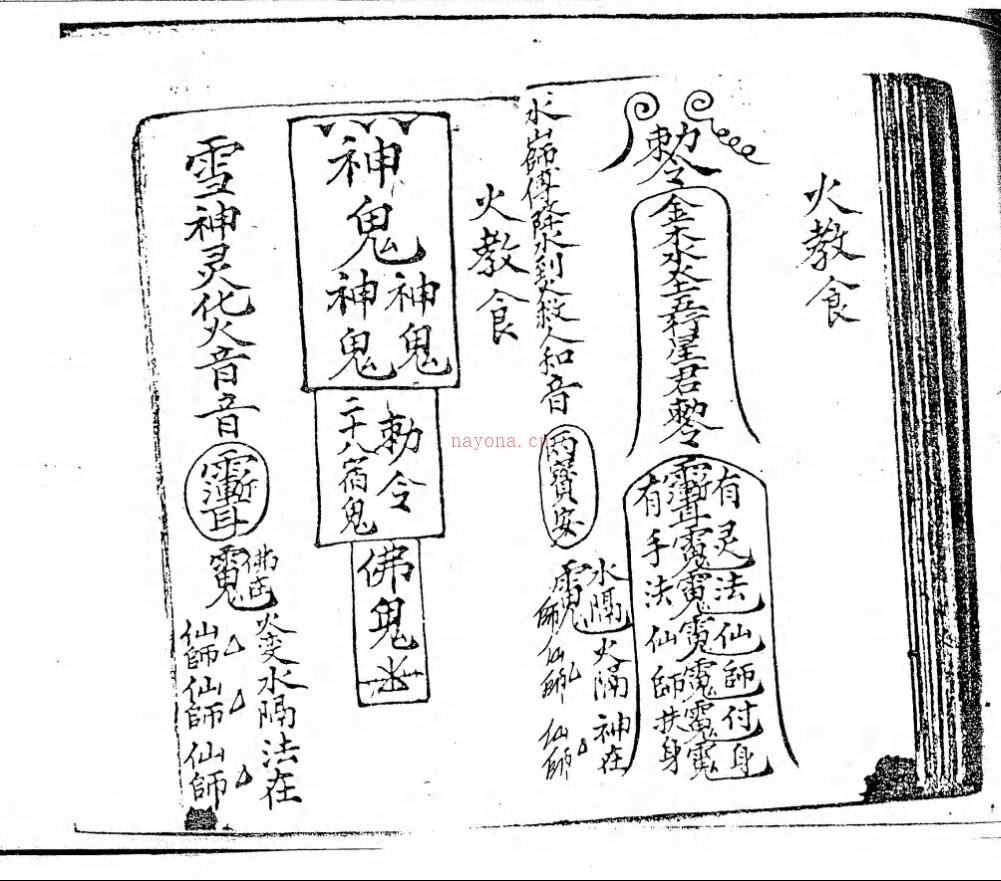 火教食
勅令
金木水圣五行星君勅令
有灵法仙師付身
有手法仙師扶身
水師傅降水到火殺人和音
水隔火隔神在
師仙師仙師
火教食
神鬼
神鬼
神鬼
勅令
二十八宿鬼
佛鬼
雪神灵化火音音
火变水隔法在
仙師仙師仙師
nayona.cn